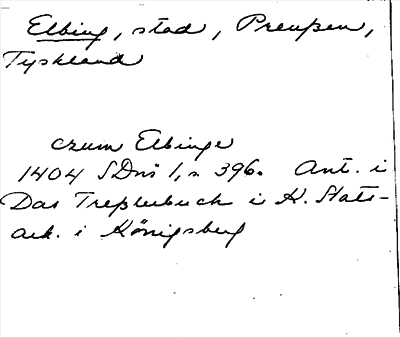 Elbing, stad, Preußen,
Tyskland
czum Elbinge
1404 SDns 1, s. 396. Ant. i
Das Treßlerbuch i K. Stats-
ark. i Königsberg